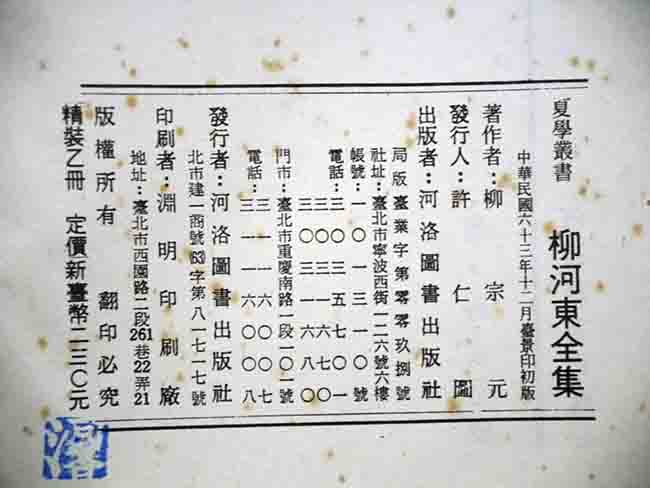 夏學叢書 柳河東全集
中華民國六十三年十二月臺景印初版
著作者:柳宗元
發行人:許仁圖
出版者:河洛圖書出版社
局版臺業字第零零玖捌號
社址:臺北市寧波西街一二六號六樓
帳號:一〇一三一〇號
電話:三〇三五七〇一
三〇三一六七〇
三〇三一六八〇
門市:臺北市重慶南路一段一〇一號
電話:三一一六〇〇七
三一一六〇〇八
發行者:河洛圖書出版社
北市建一商號63字第八一七一七號
印刷者:淵明印刷廠
地址:臺北市西園路二段261巷22弄21
版權所有 翻印必究
精裝乙冊 定價新臺幣二三〇元